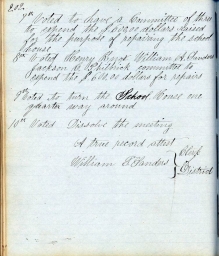 202.
7th Voted to have a Committee of three
to expend the dollars raised
for the purpose of repairing the school
house
8th Voted Henry Keyes William H. Flanders
Jackson committee to
expend the dollars for repairs
9th Voted to turn the School House one
quarter way around
10th Voted Dissolve the meeting
A true record attest
William Flanders Clerk
District